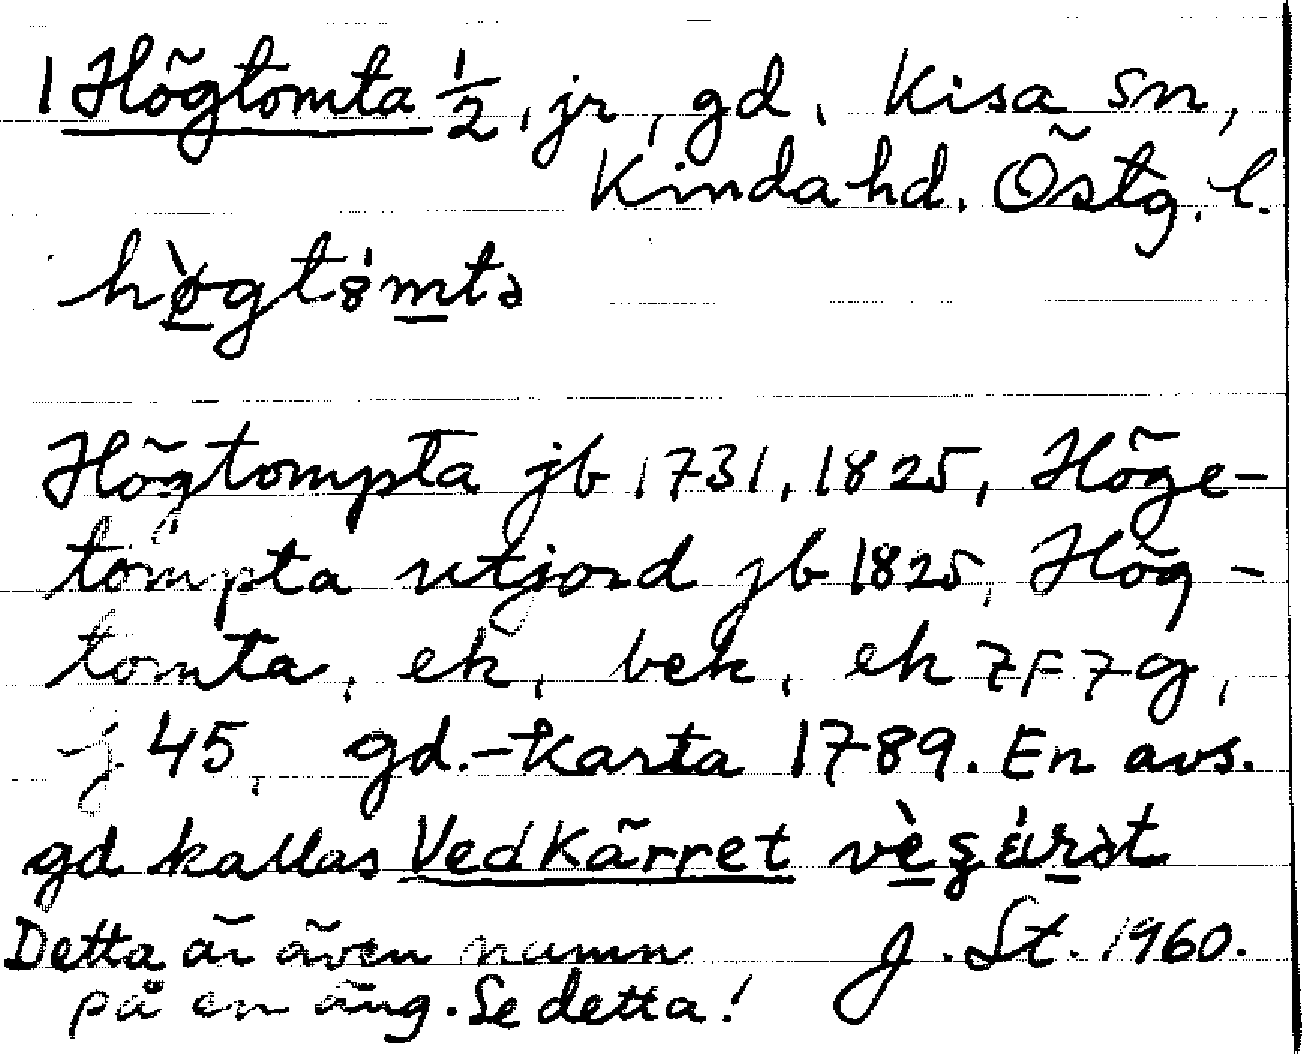 1 Högtomta ½, jr, gd, Kisa sn,
Kinda hd. Östg. l.
hø̀gtómtə
Högtompta jb 1731, 1825, Höge-
tompta utjord jb 1825, Hög-
tomta, ek, bek, ek 7F7g,
j 45, gd.-karta 1789. En avs.
gd kallas Vedkärret
Detta är även namn J. St. 1960.
på en äng. Se detta!